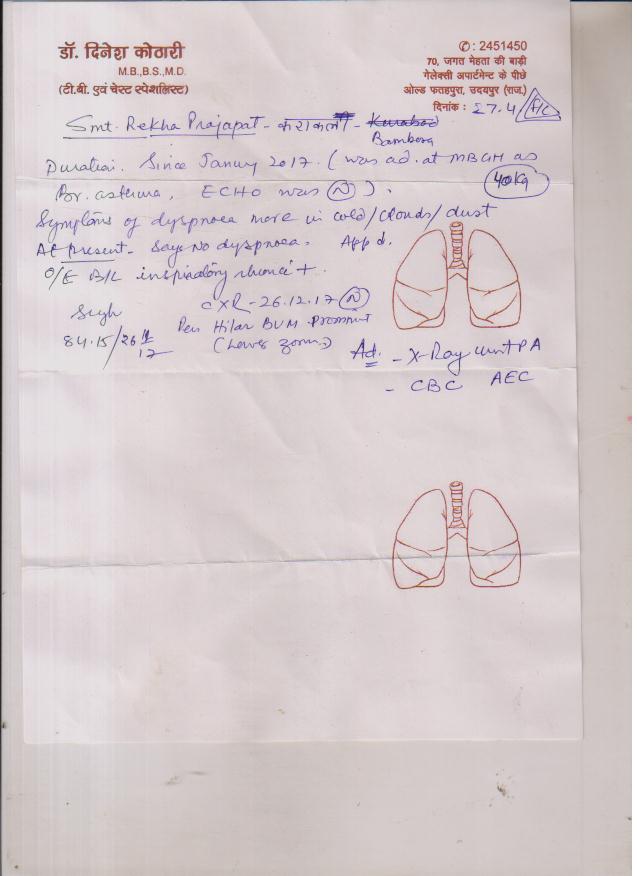 डॉ. दिनेश कोठारी
M.B.,B.S.,M.D.
(टी.बी. एवं चेस्ट स्पेशलिस्ट)
✆: 2451450
70, जगत मेहता की बाड़ी
गेलेक्सी अपार्टमेन्ट के पीछे
ओल्ड फतहपुरा, उदयपुर (राज.)
दिनांक : 27.4
Smt. Rekha Prajapat - - Kurabad
Bambora
Duration. Since January 2017. (was ad. at MBGH as
Br. asthma, ECHO was (N)).
40kg
Symptoms of dyspnoea more in cold/clouds/dust
At present - says No dyspnoea. App d.
O/E B/L inspiratory rhonci +.
CXR - 26.12.17 (N)
Peri Hilar BVM Promint
(Lower zones)
84.15/26
17
Ad. - X-Ray chest PA
- CBC AEC